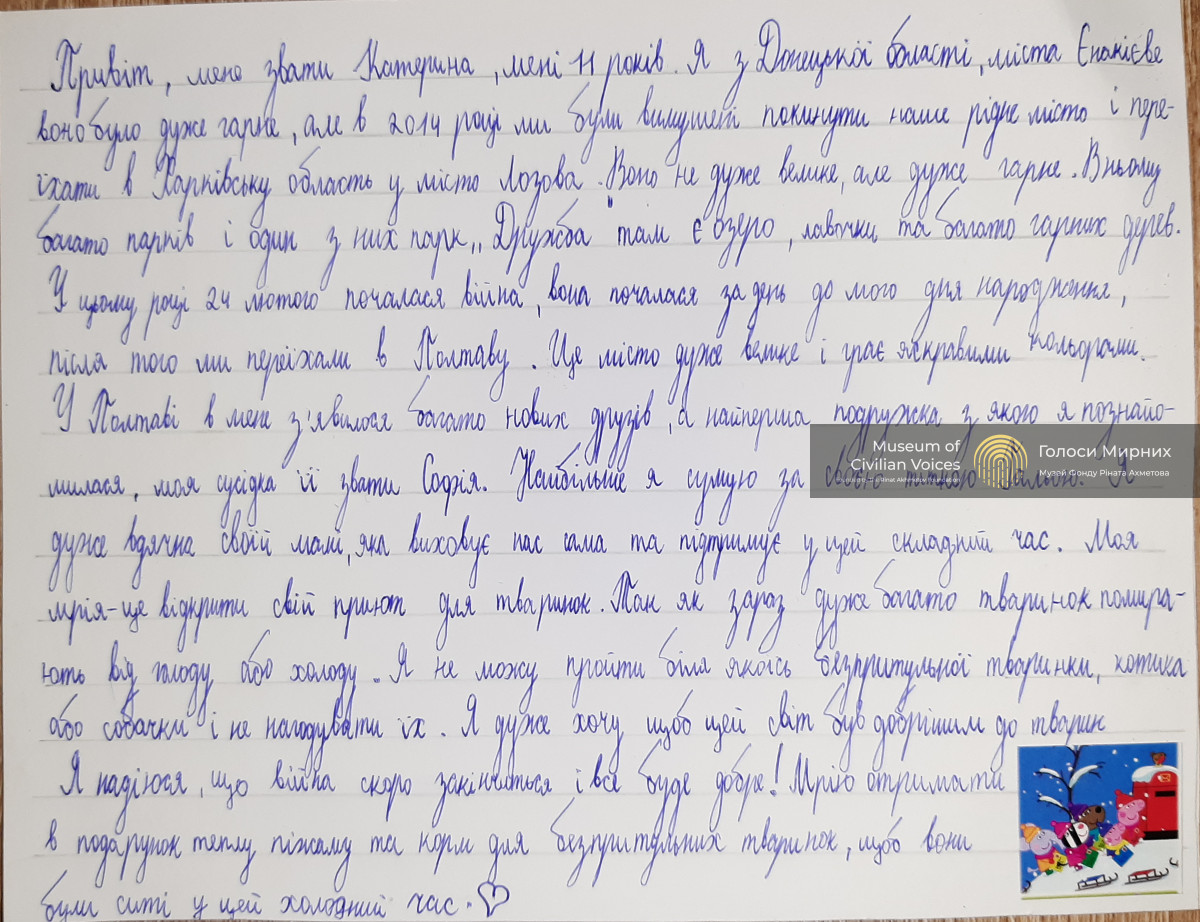 Привіт, мене звати Катерина, мені 11 років. Я з Донецької області, міста Єнакієве
воно було дуже гарне, але в 2014 році ми були вимушені покинути наше рідне місто і пере-
їхати в Харківську область у місто Лозова. Воно не дуже велике, але дуже гарне. В ньому
багато парків і один з них парк „Дружба" там є озеро, лавочки та багато гарних дерев.
У цьому році 24 лютого почалася війна, вона почалася за день до мого дня народження,
після того ми переїхали в Полтаву. Це місто дуже велике і грає яскравими кольорами.
У Полтаві в мене з'явилося багато нових друзів, а найперша подружка з якою я познайо-
милася, моя сусідка її звати Софія. Найбільше я сумую за своєю Я
дуже вдячна своїй мамі, яка виховує нас сама та підтримує у цей складний час. Моя
мрія-це відкрити свій приют для тваринок. Так як зараз дуже багато тваринок помира-
ють від голоду або холоду. Я не можу пройти біля якоїсь безпритульної тваринки, котика
або собачки і не нагодувати їх. Я дуже хочу щоб цей світ був добрішим до тварин
Я надіюся, що війна скоро закінчиться і все буде добре! Мрію отримати
в подарунок теплу піжаму та корм для безпритульних тваринок, щоб вони
були ситі у цей холодний час.
Museum of
Civilian Voices
Голоси Мирних
Музей Фонду Ріната Ахметова